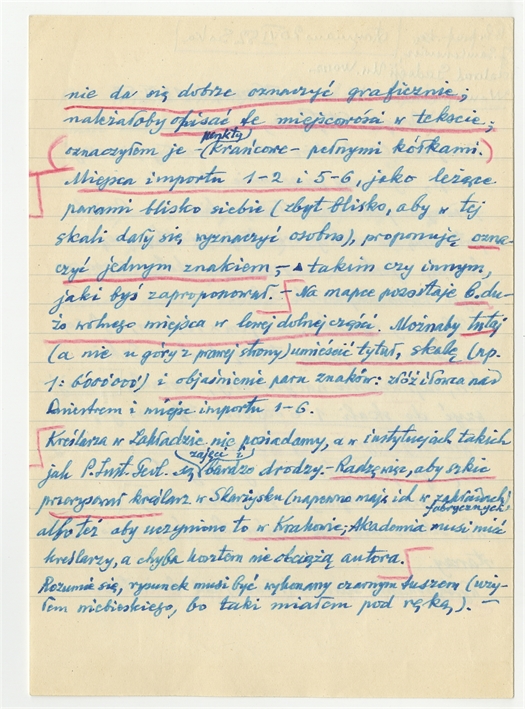 nie da się dobrze oznaczyć graficznie;
należałoby opisać te miejscowości w tekście;
oznaczyłem je - (punkty krańcowe - pełnymi kółkami.)
Miejsca importu 1-2 i 5-6, jako leżące
parami blisko siebie (zbyt blisko, aby w tej
skali dały się wyznaczyć osobno), proponuję ozna-
czyć jednym znakiem, - ▲ takim czy innym,
jaki byś zaproponował. - Na mapce pozostaje b. du-
żo wolnego miejsca w lewej dolnej części. Możnaby tutaj
(a nie u góry z prawej strony) umieścić tytuł, skalę (np.
1: 6'000'000) i objaśnienie paru znaków: złóż łowca nad
Dniestrem i miejsc importu 1-6.
Kreślarza w Zakładzie nie posiadamy, a w instytucjach takich
jak P. Inst. Geol. są zajęci i bardzo drodzy. - Radzę więc, aby szkic
przerysował kreślarz w Skarżysku (napewno mają ich w zakładach fabrycznych)
albo też aby uczyniono to w Krakowie; Akademia musi mieć
kreślarzy, a chyba kosztem nie obciążą autora.
Rozumie się, rysunek musi być wykonany czarnym tuszem (uży-
łem niebieskiego, bo taki miałem pod ręką). -